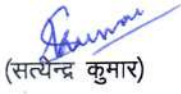 (सत्येन्द्र कुमार)